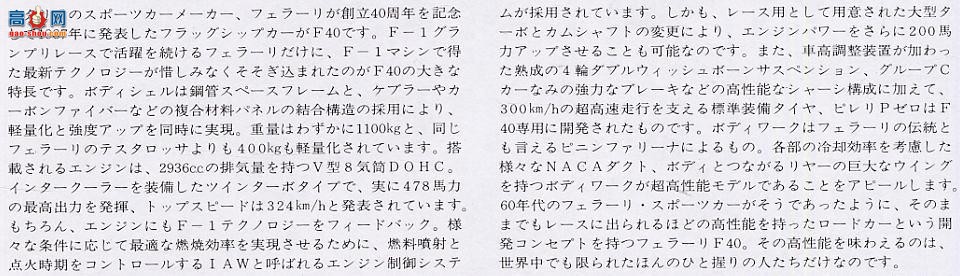 高手网
gao-shou.com
のスポーツカーメーカー、フェラーリが創立40周年を記念
年に発表したフラッグシップカーがＦ40です。Ｆ－１グラ
ンプリレースで活躍を続けるフェラーリだけに、Ｆ－１マシンで得
た最新テクノロジーが惜しみなくそそぎ込まれたのがＦ40の大きな
特長です。ボディシェルは鋼管スペースフレームと、ケブラーやカ
ーボンファイバーなどの複合材料パネルの結合構造の採用により、
軽量化と強度アップを同時に実現。重量はわずかに1100kgと、同じ
フェラーリのテスタロッサよりも４00kgも軽量化されています。搭
載されるエンジンは、2936ccの排気量を持つＶ型８気筒ＤＯＨＣ。
インタークーラーを装備したツインターボタイプで、実に478馬力
の最高出力を発揮、トップスピードは324km/hと発表されています。
もちろん、エンジンにもＦ－１テクノロジーをフィードバック。様
々な条件に応じて最適な燃焼効率を実現させるために、燃料噴射と
点火時期をコントロールするＩＡＷと呼ばれるエンジン制御システ
ムが採用されています。しかも、レース用として用意された大型タ
ーボとカムシャフトの変更により、エンジンパワーをさらに200馬
力アップさせることも可能なのです。また、車高調整装置が加わっ
た熟成の４輪ダブルウィッシュボーンサスペンション、グループＣ
カーなみの強力なブレーキなどの高性能なシャーシ構成に加えて、
300km/hの超高速走行を支える標準装備タイヤ、ピレリＰゼロはＦ
40専用に開発されたものです。ボディワークはフェラーリの伝統と
も言えるピニンファリーナによるもの。各部の冷却効率を考慮した
様々なＮＡＣＡダクト、ボディとつながるリヤーの巨大なウイング
を持つボディワークが超高性能モデルであることをアピールします。
60年代のフェラーリ・スポーツカーがそうであったように、そのま
までもレースに出られるほどの高性能を持ったロードカーという開
発コンセプトを持つフェラーリＦ40。その高性能を味わえるのは、
世界中でも限られたほんのひと握りの人たちだけなのです。